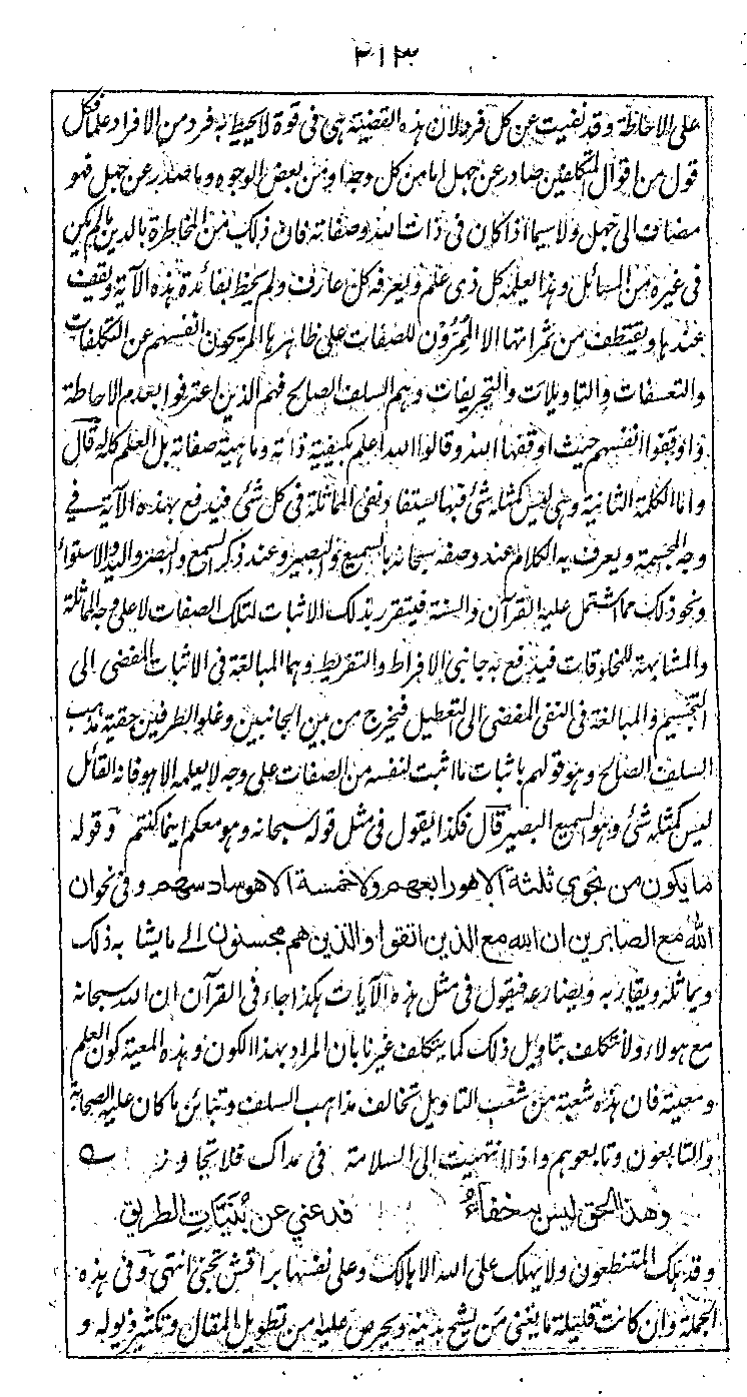 ٢١٣
على الاحاطة وقد نفيت عن كل فرد لان هذه القضية هى فى قوة لا يحيط به فرد من الافراد علما فكل
قول من اقوال المتكلفين صادر عن جهل اما من كل وجه او من بعض الوجوه وما صدر عن جهل فهو
مضاف الى جهل ولا سيما اذا كان فى ذات الله وصفاته فان ذلك من المخاطرة بالدين ما لم يكن
فى غيره من المسائل وهذا يعلمه كل ذى علم ويعرفه كل عارف ولم يحظ بفائدة هذه الآية ويقف
عندها ويقتطف من ثمراتها الا الممرون للصفات على ظاهرها المريحون انفسهم عن التكلفات
والتعسفات والتاويلات والتحريفات وهم السلف الصالح فهم الذين اعترفوا بعدم الاحاطة
واوقفوا انفسهم حيث اوقفها الله وقالوا الله اعلم بكيفية ذاته وماهية صفاته بل العلم كله له قال
واما الكلمة الثانية وهى ليس كمثله شئ فبها يستفاد نفى المماثلة فى كل شئ فيدفع بهذه الآية فى
وجه المجسمة ويعرف به الكلام عند وصفه سبحانه بالسميع والبصير وعند ذكر السمع والبصر واليد والاستواء
ونحو ذلك مما اشتمل عليه القرآن والسنة فيتقرر بذلك الاثبات لتلك الصفات لا على وجه المماثلة
والمشابهة للمخلوقات فيدفع به جانبى الافراط والتفريط وهما المبالغة فى الاثبات المفضى الى
التجسيم والمبالغة فى النفى المفضى الى التعطيل فيخرج من بين الجانبين وغلو الطرفين حقية مذهب
السلف الصالح وهو قولهم باثبات ما اثبت لنفسه من الصفات على وجه لا يعلمه الا هو فانه القائل
ليس كمثله شئ وهو السميع البصير قال فكذا يقول فى مثل قوله سبحانه وهو معكم اينما كنتم وقوله
ما يكون من نجوى ثلثة الا هو رابعهم ولا خمسة الا هو سادسهم وفى نحو ان
الله مع الصابرين ان الله مع الذين اتقوا والذين هم محسنون الى ما يشابه ذلك
ويماثله ويقاربه ويضارعه فيقول فى مثل هذه الآيات هكذا جاء فى القرآن ان الله سبحانه
مع هولاء ولا نتكلف بتاويل ذلك كما يتكلف غيرنا بان المراد بهذا الكون وهذه المعية كون العلم
ومعيته فان هذه شعبة من شعب التاويل تخالف مذاهب السلف وتباين ما كان عليه الصحابة
والتابعون وتابعوهم واذا انتهيت الى السلامة فى مداك فلا تجاوزه
وهذا الحق ليس به خفاء فدعني عن بُنَيَّاتِ الطريق
وقد هلك المتنطعون ولا يهلك على الله الا هالك وعلى نفسها براقش تجنى انتهى وفى هذه
الجملة وان كانت قليلة ما يغنى من يشح بدينه ويحرص عليه من تطويل المقال وتكثير ذيوله و